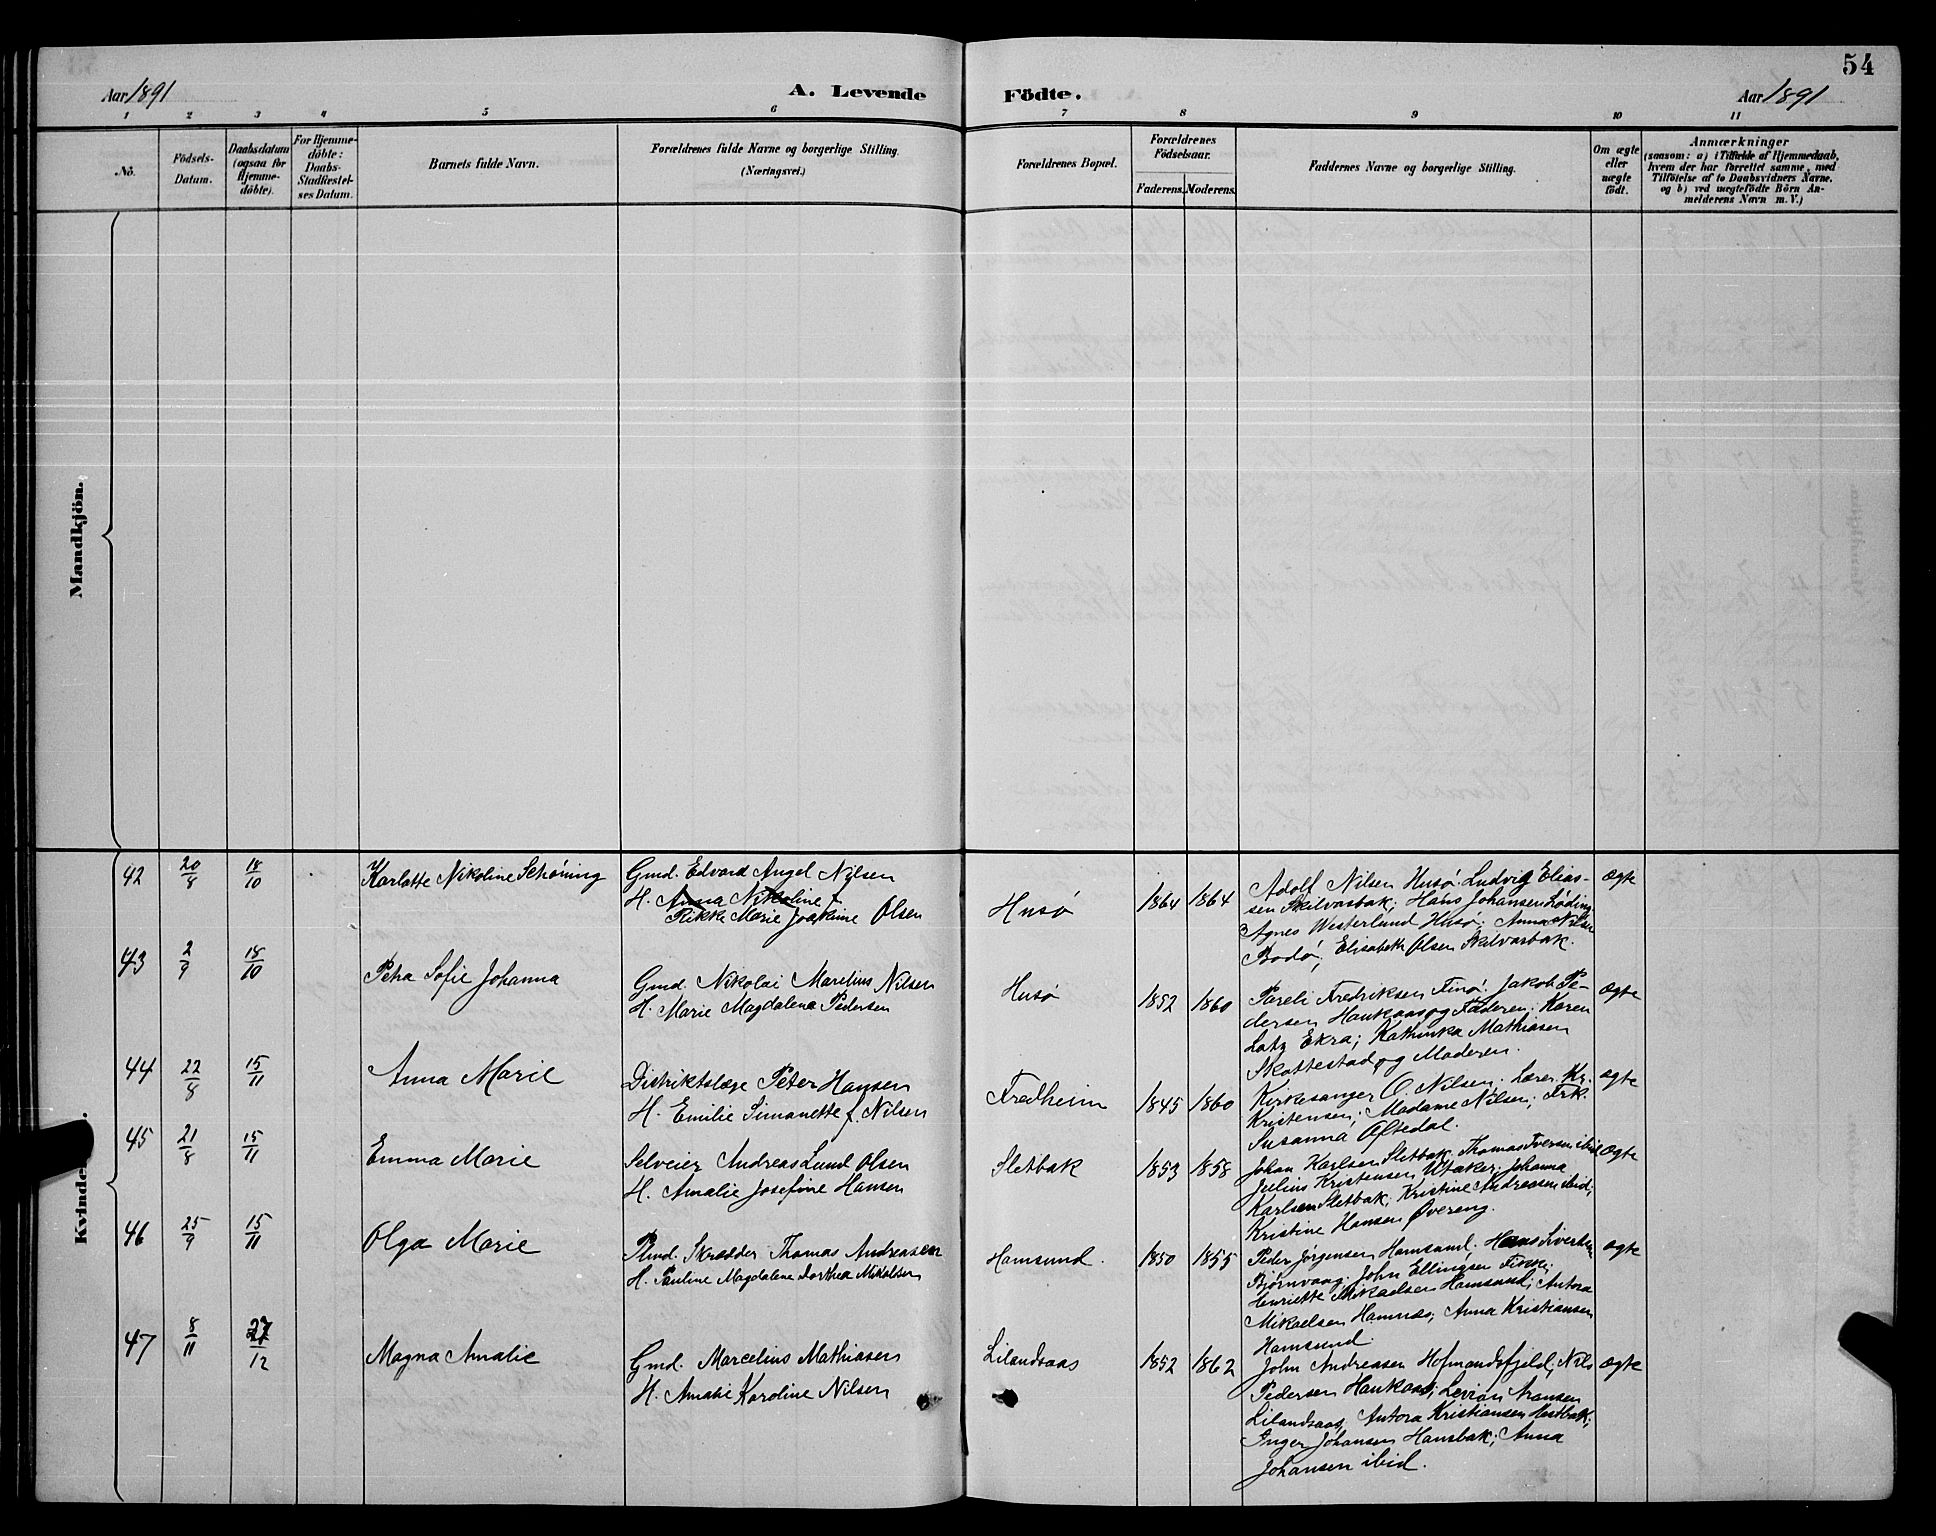 54
Aar 1891
A. Levende
Födte.
Aar 1891
1 2 3 4 5 6 7 8 9 10 11
No.
Födsels-
Datum.
Daabsdatum
(ogsaa for
Hjemme-
döbte).
For Hjemme-
döbte:
Daabs-
Stadfæstel-
ses Datum.
Barnets fulde Navn.
Forældrenes fulde Navne og borgerlige Stilling.
(Næringsvei.)
Forældrenes Bopæl.
Forældrenes
Födselsaar.
Faderens. Moderens.
Faddernes Navne og borgerlige Stilling.
Om ægte
eller
uægte
födt.
Anmærkninger
(saasom: a) i Tilfælde af Hjemmedaab,
hvem der har forrettet samme, med
Tilföielse af to Daabsvidners Navne.
og b) ved uægtefödte Börn An-
melderens Navn m. V.)
Mandkjön.
Kvinde
42 20/8 18/10 Karlotte Nikoline Schøning
Gmd. Edvard Angel Nilsen
H. Anna Nikoline f
Rikke Marie Joakine Olsen
Husø 1864 1864
Adolf Nilsen Husø. Ludvig Elias-
sen Skilvasbak; Hans Johansen Løding
Agnes Westerlund Husø; Anna Nilsen
Bodø, Elisabeth Olsen Skilvasbak.
ægte
43 2/9 18/10 Petra Sofie Johanna
Gmd. Nikolai Marelius Nilsen
H. Marie Magdalena Pedersen
Husø 1852 1860
Pareli Fredriksen Finø. Jakob Pe-
dersen Haukaas og Faderen; Karen
Lotz Ekra; Kathinka Mathiasen
Skottestad og Moderen.
ægte
44 22/8 15/11 Anna Marie
Distriktslæge Peter Hansen
H. Emilie Simonette f. Nilsen
Fredheim 1845 1860
Kirkesanger O. Nilsen. Lærer Kr.
Kristensen; Madame Nilsen; Frk.
Susanna Oftedal.
ægte
45 21/8 15/11 Emma Marie
Selveier Andreas Lund Olsen
H. Amalie Josefine Hansen
Sletbak 1853 1858
Johan Karlsen Sletbak, Thomas Iversen ibid
Julius Kristensen Utaker; Johanna
Karlsen Sletbak; Kristine Andreasen ibid;
Kristine Hansen Øvereng.
ægte
46 25/9 15/11 Olga Marie
Plmd. Skrædder Thomas Andreasen
H. Pauline Magdalene Dorthea Mikalsen
Hamsund. 1850 1855
Peder Jørgensen Hamsund; Hans Sivertsen
Bjørnvaag; John Ellingsen Finnø;
Henriette Mikaelsen Hamsund; Antora
Mikaelsen Hamnes; Anna Kristiansen
Hamsund.
ægte
47 8/11 27/12 Magna Amalie
Gmd. Marcelius Mathiasen
H. Amalie Karoline Nilsen
Lilandsaas 1852 1862
John Andreasen Hofmandsfjeld, Nils
Pedersen Haukaas; Levion Aronsen
Lilandsaas, Antora Kristiansen Hestbak;
Inger Johansen Hansbak; Anna
Johansen ibid.
ægte